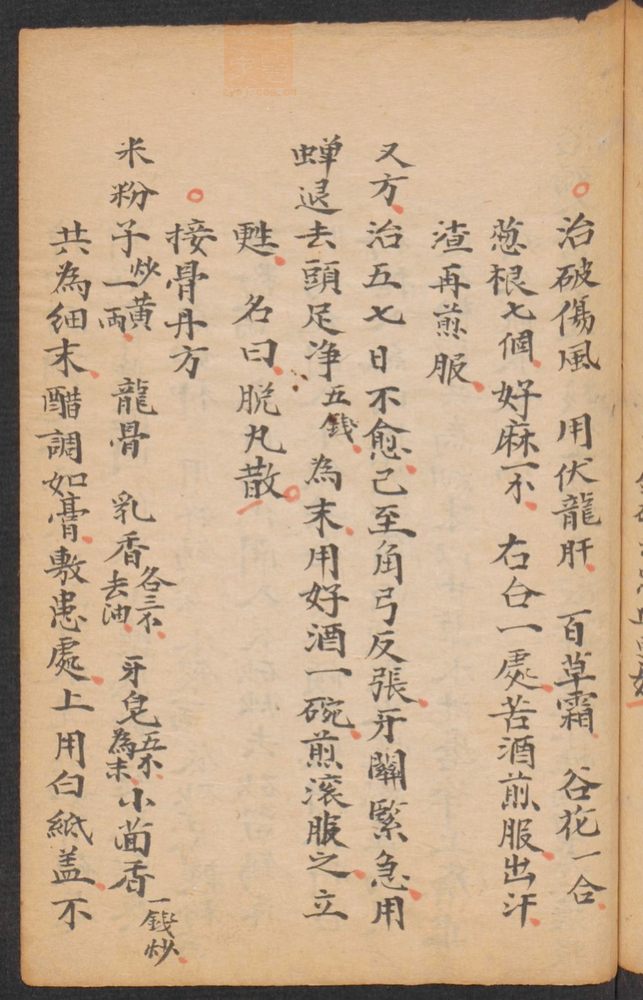 治破傷風　用伏龍肝　百草霜　谷花一合
葱根七個　好麻一　右合一處苦酒煎服出汗
渣再煎服
又方　治五七日不愈已至角弓反張牙關緊急用
蟬退去頭足净五錢　為末用好酒一碗煎滚服之立
甦　名曰脱丸散
接骨丹方
米粉子炒黄一両　龍骨　乳香各三　去油　牙皂五　為末　小茴香一錢炒
共為细末醋調如膏敷患處上用白紙盖不